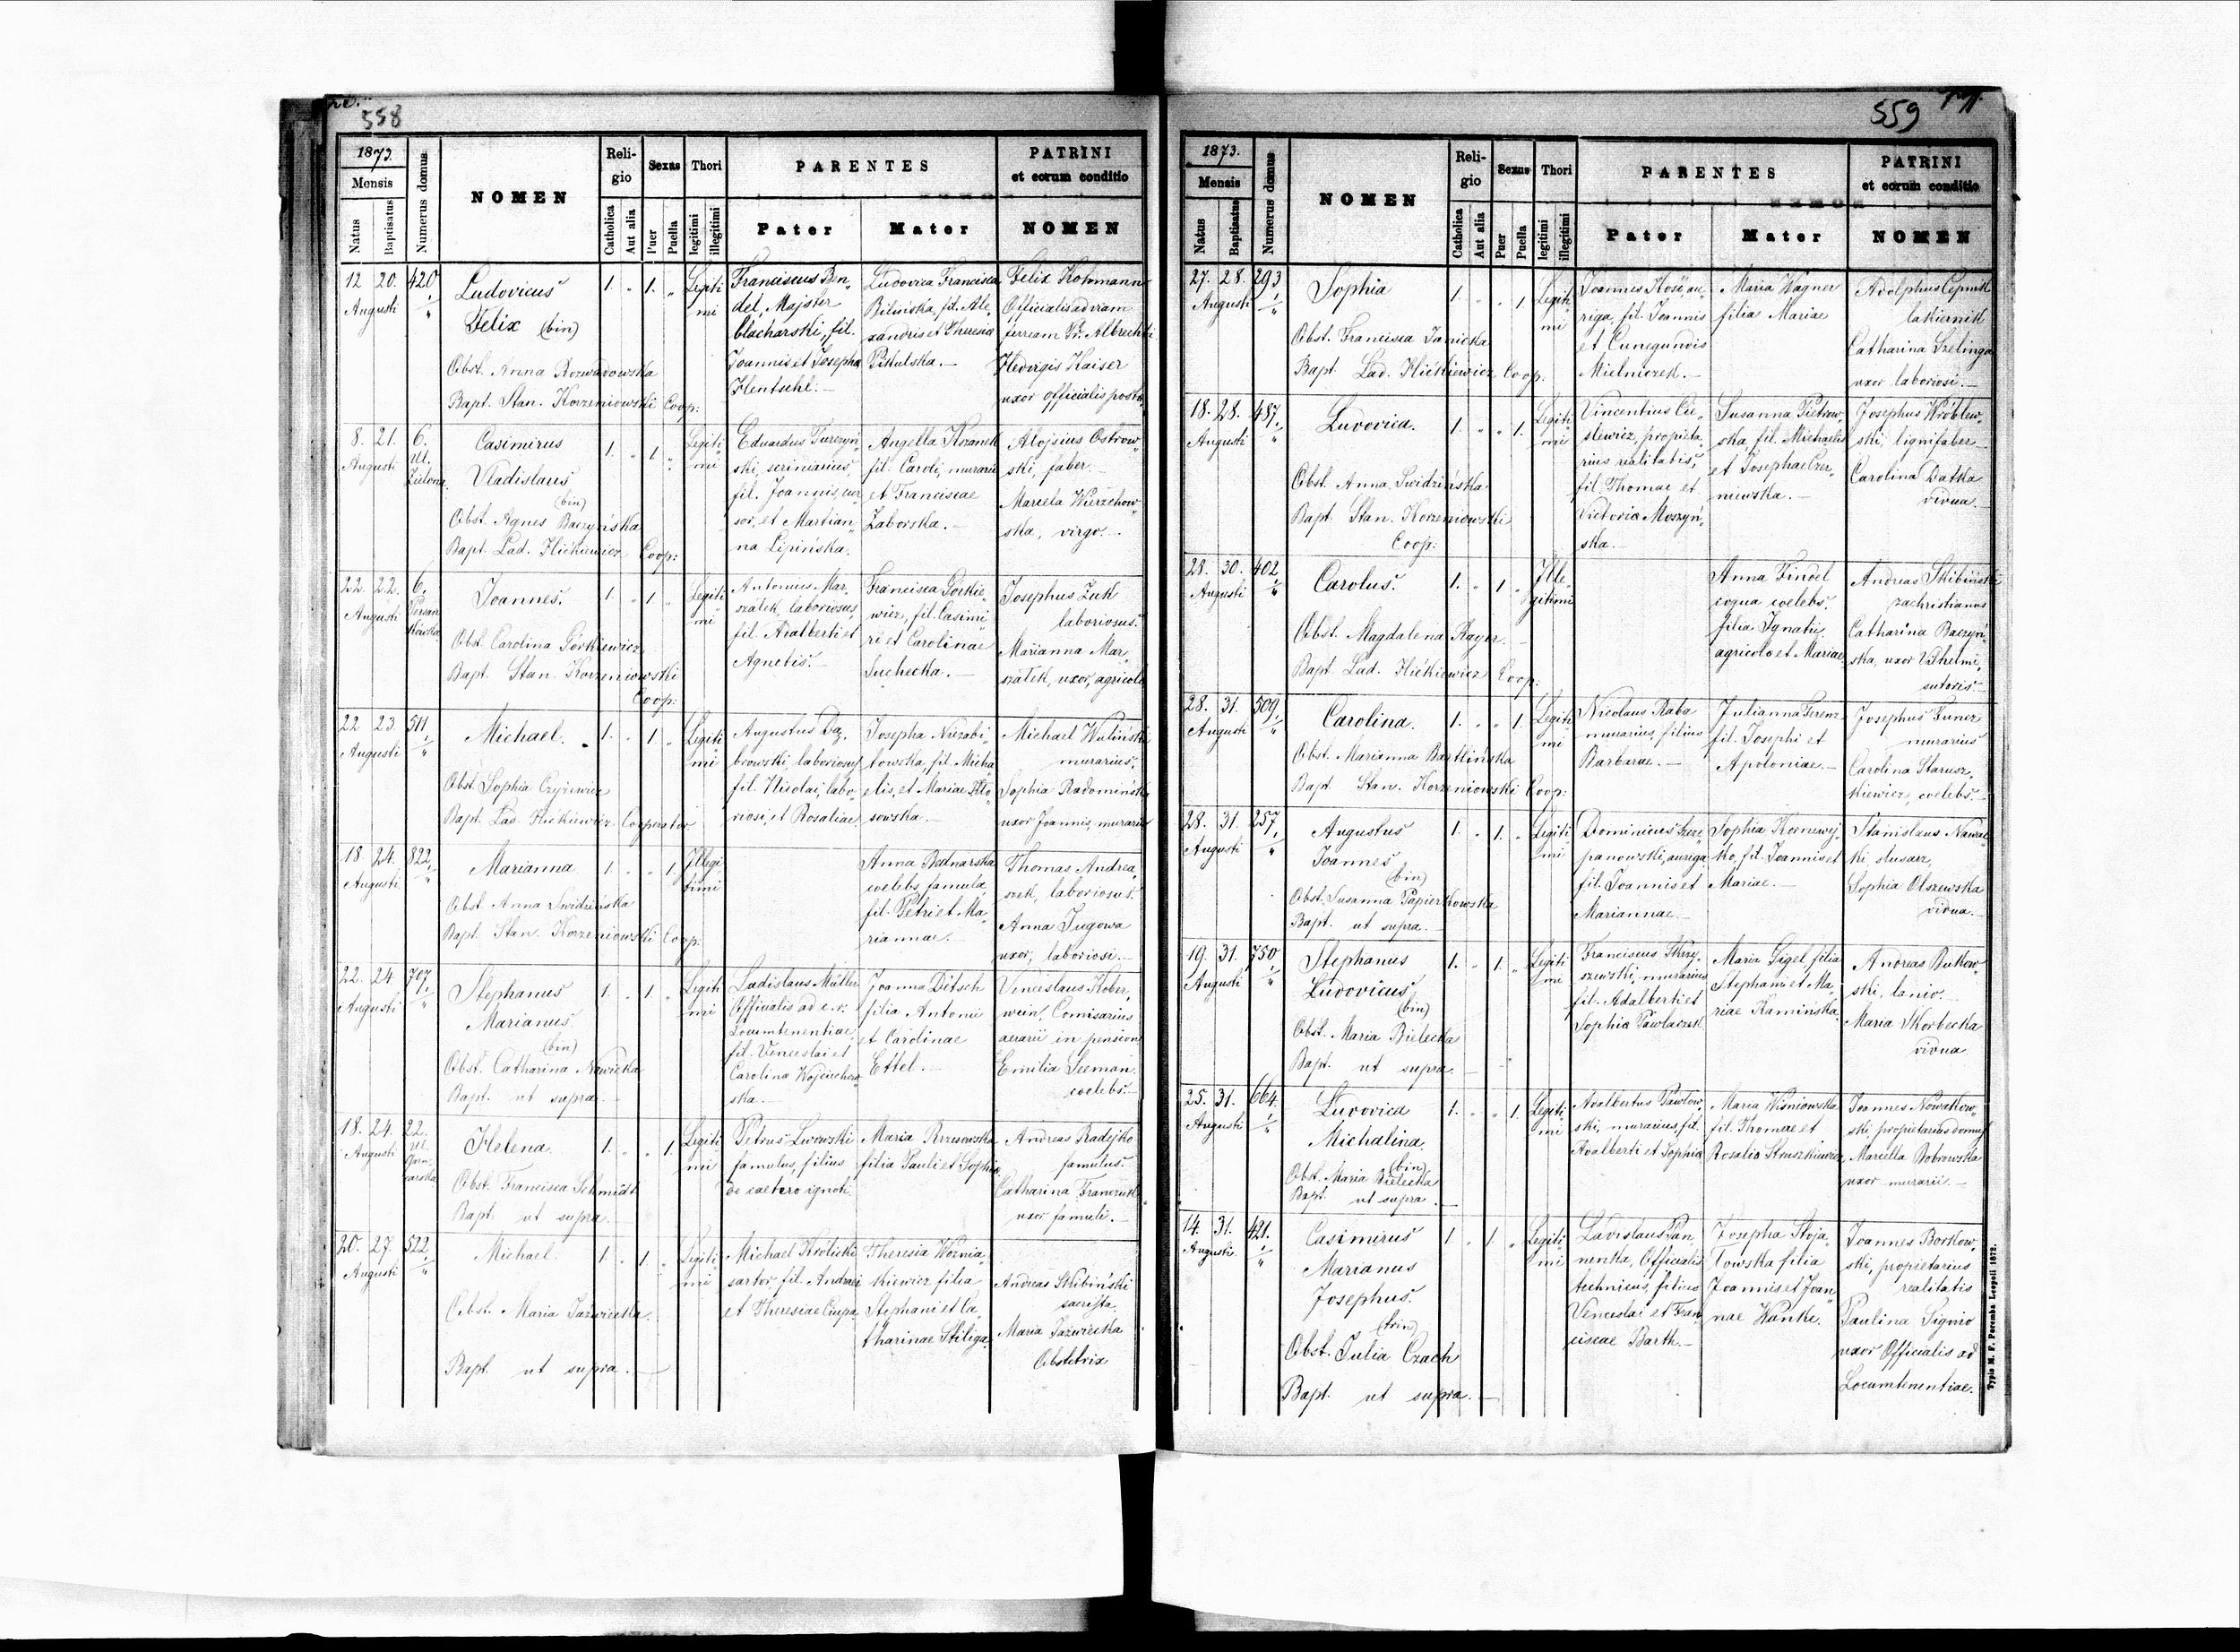 558
1873.
Mensis
Natus
Baptisatus
Numerus domus
NOMEN
Religio
Catholica
Aut alia
Sexus
Puer
Puella
Thori
legitimi
illegitimi
PARENTES
Pater
Mater
PATRINI
et eorum conditio
NOMEN
12 20. 420
Augusti
Ludovicus
Felix (bin)
Obst. Anna Rozwadowska
Bapt. Stan. Korzeniowski Coop:
1. " 1. "
Legiti
mi
Franciscus Ben„
del, Majster
blacharski, fil.
Joannis et Josepha
Hentschl.—
Ludovica Francisca
Bilinska, fil. Ale„
xandris et Theresia
Pikulska.—
Felix Kohmann
Officialis ad viam
ferream Fr. Albrechti
Hedvigis Kaiser
uxor officialis posta
8. 21. 6.
Augusti ul.
Zielona
Casimirus
Vladislaus
(bin)
Obst. Agnes Baczyńska
Bapt. Lad. Hickiewicz Coop:
1. " 1. "
Legiti
mi
Eduardus Turczyń„
ski, scriniarius,
fil. Joannis, cur
sor, et Martian„
na Lipińska.
Angella Kozanek
fil. Caroli, murarii
et Franciscae
Zaborska.—
Alojsius Ostrow„
ski, faber.—
Marcela Wierzchow„
ska, virgo.—
22. 22. 6.
Augusti
Joannes.
Obst. Carolina Górkiewicz
Bapt. Stan. Korzeniowski
Coop:
1. " 1. "
Legiti
mi
Antonius Mar„
szalek, laboriosus,
fil. Adalberti et
Agnetis.—
Francisca Górkie„
wicz, fil. Casimi„
ri et Carolinae
Suchecka.—
Josephus Żuk
laboriosus.
Marianna Mar„
szalek, uxor, agricola
22 23. 511.
Augusti
Michael.
Obst. Sophia Czyżewicz
Bapt. Lad. Hickiewicz Cooperator
1. " 1. "
Legiti
mi
Augustus Dą„
browski, laboriosus
fil. Nicolai, labo„
riosi, et Rosaliae
Josepha Niezabi„
towska, fil. Micha
elis, et Mariae Kło„
sowska.—
Michael Wuliński
murarius.
Sophia Radomińska
uxor Joannis, murarii
18. 24. 822.
Augusti
Marianna
Obst. Anna Swidzińska
Bapt. Stan. Korzeniowski Coop:
1. " " 1.
Illegi
timi
Anna Bednarska
coelebs, famula,
fil. Petri et Ma„
riannae.—
Thomas Andrea„
szek, laboriosus.
Anna Jugowa
uxor, laboriosi.—
22. 24. 707.
Augusti
Stephanus
Marianus
(bin)
Obst. Catharina Nawicka
Bapt. ut supra.—
1. " 1. "
Legiti
mi
Ladislaus Müller
Officialis ad c. r.
Locumtenentiae,
fil. Venceslai et
Carolina Wojciechow
ska.—
Joanna Ditsch
filia Antonii
et Carolinae
Ettel.—
Vinceslaus Kober„
wein, Comisarius
aerarii in pension
Emilia Seeman
coelebs.—
18. 24. 22.
Augusti ul.
Helena.
Obst. Francisca Schmidt
Bapt. ut supra.—
1. " " 1.
Legiti
mi
Petrus Lwowski
famulus, filius
de caetero ignoti
Maria Rzwowska
filia Pauli et Sophia
Andreas Radejko
famulus.
Catharina Franczuk
uxor famuli.—
20. 27. 522.
Augusti
Michael.
Obst. Maria Jaźwiecka
Bapt. ut supra.—
1. " 1. "
Legiti
mi
Michael Królicki
sartor, fil. Andreae
et Theresiae Ciupa
Theresia Woźnia„
kiewicz filia
Stephani et Ca„
tharinae Stiliga.
Andreas Skibiński
sacrista.
Maria Jaźwiecka
Obstetrix
559
1873.
Mensis
Natus
Baptisatus
Numerus domus
NOMEN
Religio
Catholica
Aut alia
Sexus
Puer
Puella
Thori
legitimi
illegitimi
PARENTES
Pater
Mater
PATRINI
et eorum conditio
NOMEN
27. 28. 293
Augusti
Sophia
Obst. Francisca Janicka
Bapt. Lad. Hickiewicz Coop.
1. " " 1.
Legiti
mi
Joannes Kość, au„
riga, fil. Joannis
et Cunegundis
Mielniczek.—
Maria Wagner
filia Mariae
Adolphus Cepnik
lakiernik
Catharina Szelinga
uxor laboriosi.—
18. 28. 487.
Augusti
Ludovica.
Obst. Anna Swidzińska
Bapt. Stan. Korzeniowski
Coop:
1. " " 1.
Legiti
mi
Vincentius Cie„
slewicz, proprieta„
rius realitatis,
fil. Thomae et
Victoria Moszyń„
ska.—
Susanna Pietrow„
ska, fil. Michaelis
et Josephae Czer„
niewska.—
Josephus Wróblew„
ski, lignifaber
Carolina Datka
vidua.
28. 30. 402
Augusti
Carolus.
Obst. Magdalena Rayer.—
Bapt. Lad. Hickiewicz Coop:
1. " 1 "
Ille
gitimi
Anna Findel
coqua coelebs.
filia Ignatii
agricola et Mariae
Andreas Skibiński
zachristianus
Catharina Baczyń„
ska, uxor Vilhelmi,
sutoris.—
28. 31. 509.
Augusti
Carolina.
Obst. Marianna Bartlińska
Bapt. Stan. Korzeniowski Coop:
1. " " 1.
Legiti
mi
Nicolaus Raba
murarius, filius
Barbarae.—
Julianna Ferenz
fil. Josephi et
Apoloniae.—
Josephus Funcz
murarius
Carolina Starusz„
kiewicz, coelebs.—
28. 31. 257.
Augusti
Augustus
Joannes
(bin)
Obst. Susanna Papierkowska
Bapt. ut supra.—
1. " 1. "
Legiti
mi
Dominicus Szcze
panowski, auriga,
fil. Joannis et
Mariannae.—
Sophia Kornewij„
ko, fil. Joannis et
Mariae.—
Stanislaus Nawal
ki, slusarz,
Sophia Olszewska
vidua.—
19. 31. 750.
Augusti
Stephanus
Ludovicus
(bin)
Obst. Maria Bielecka
Bapt. ut supra.—
1. " 1. "
Legiti
mi
Franciscus Skrzy„
szewski, murarius
fil. Adalberti et
Sophia Pawlaczek
Maria Gigel, filia
Stephani et Ma„
riae Kamińska.
Andreas Bukow„
ski, lanio.—
Maria Skorbecka
vidua
25. 31. 664.
Augusti
Ludovica
Michalina.
(bin)
Obst. Maria Bielecka
Bapt. ut supra.—
1. " " 1.
Legiti
mi
Adalbertus Pawlow„
ski, murarius, fil.
Adalberti et Sophia
Maria Wiśniowska
fil. Thomae et
Rosalia Struszkiewicz
Joannes Nowakow„
ski, propietarius domus
Marcella Bobrowska
uxor murarii.—
14. 31. 421.
Augusti.
Casimirus
Marianus
Josephus.
(trin)
Obst. Julia Czach
Bapt. ut supra.—
1 " 1. "
Legiti
mi
Ladislaus Pan„
nenka, Officialis
technicus, filius
Venceslai et Fran
ciscae Barth.—
Josepha Stoja„
lowska filia
Joannis et Joan„
nae Hanke.
Joannes Borkow„
ski, propietarius
realitatis
Paulina Signio
uxor Officialis ad
Locumtenentiae.
Typis M. F. Poremba Leopoli 1872.